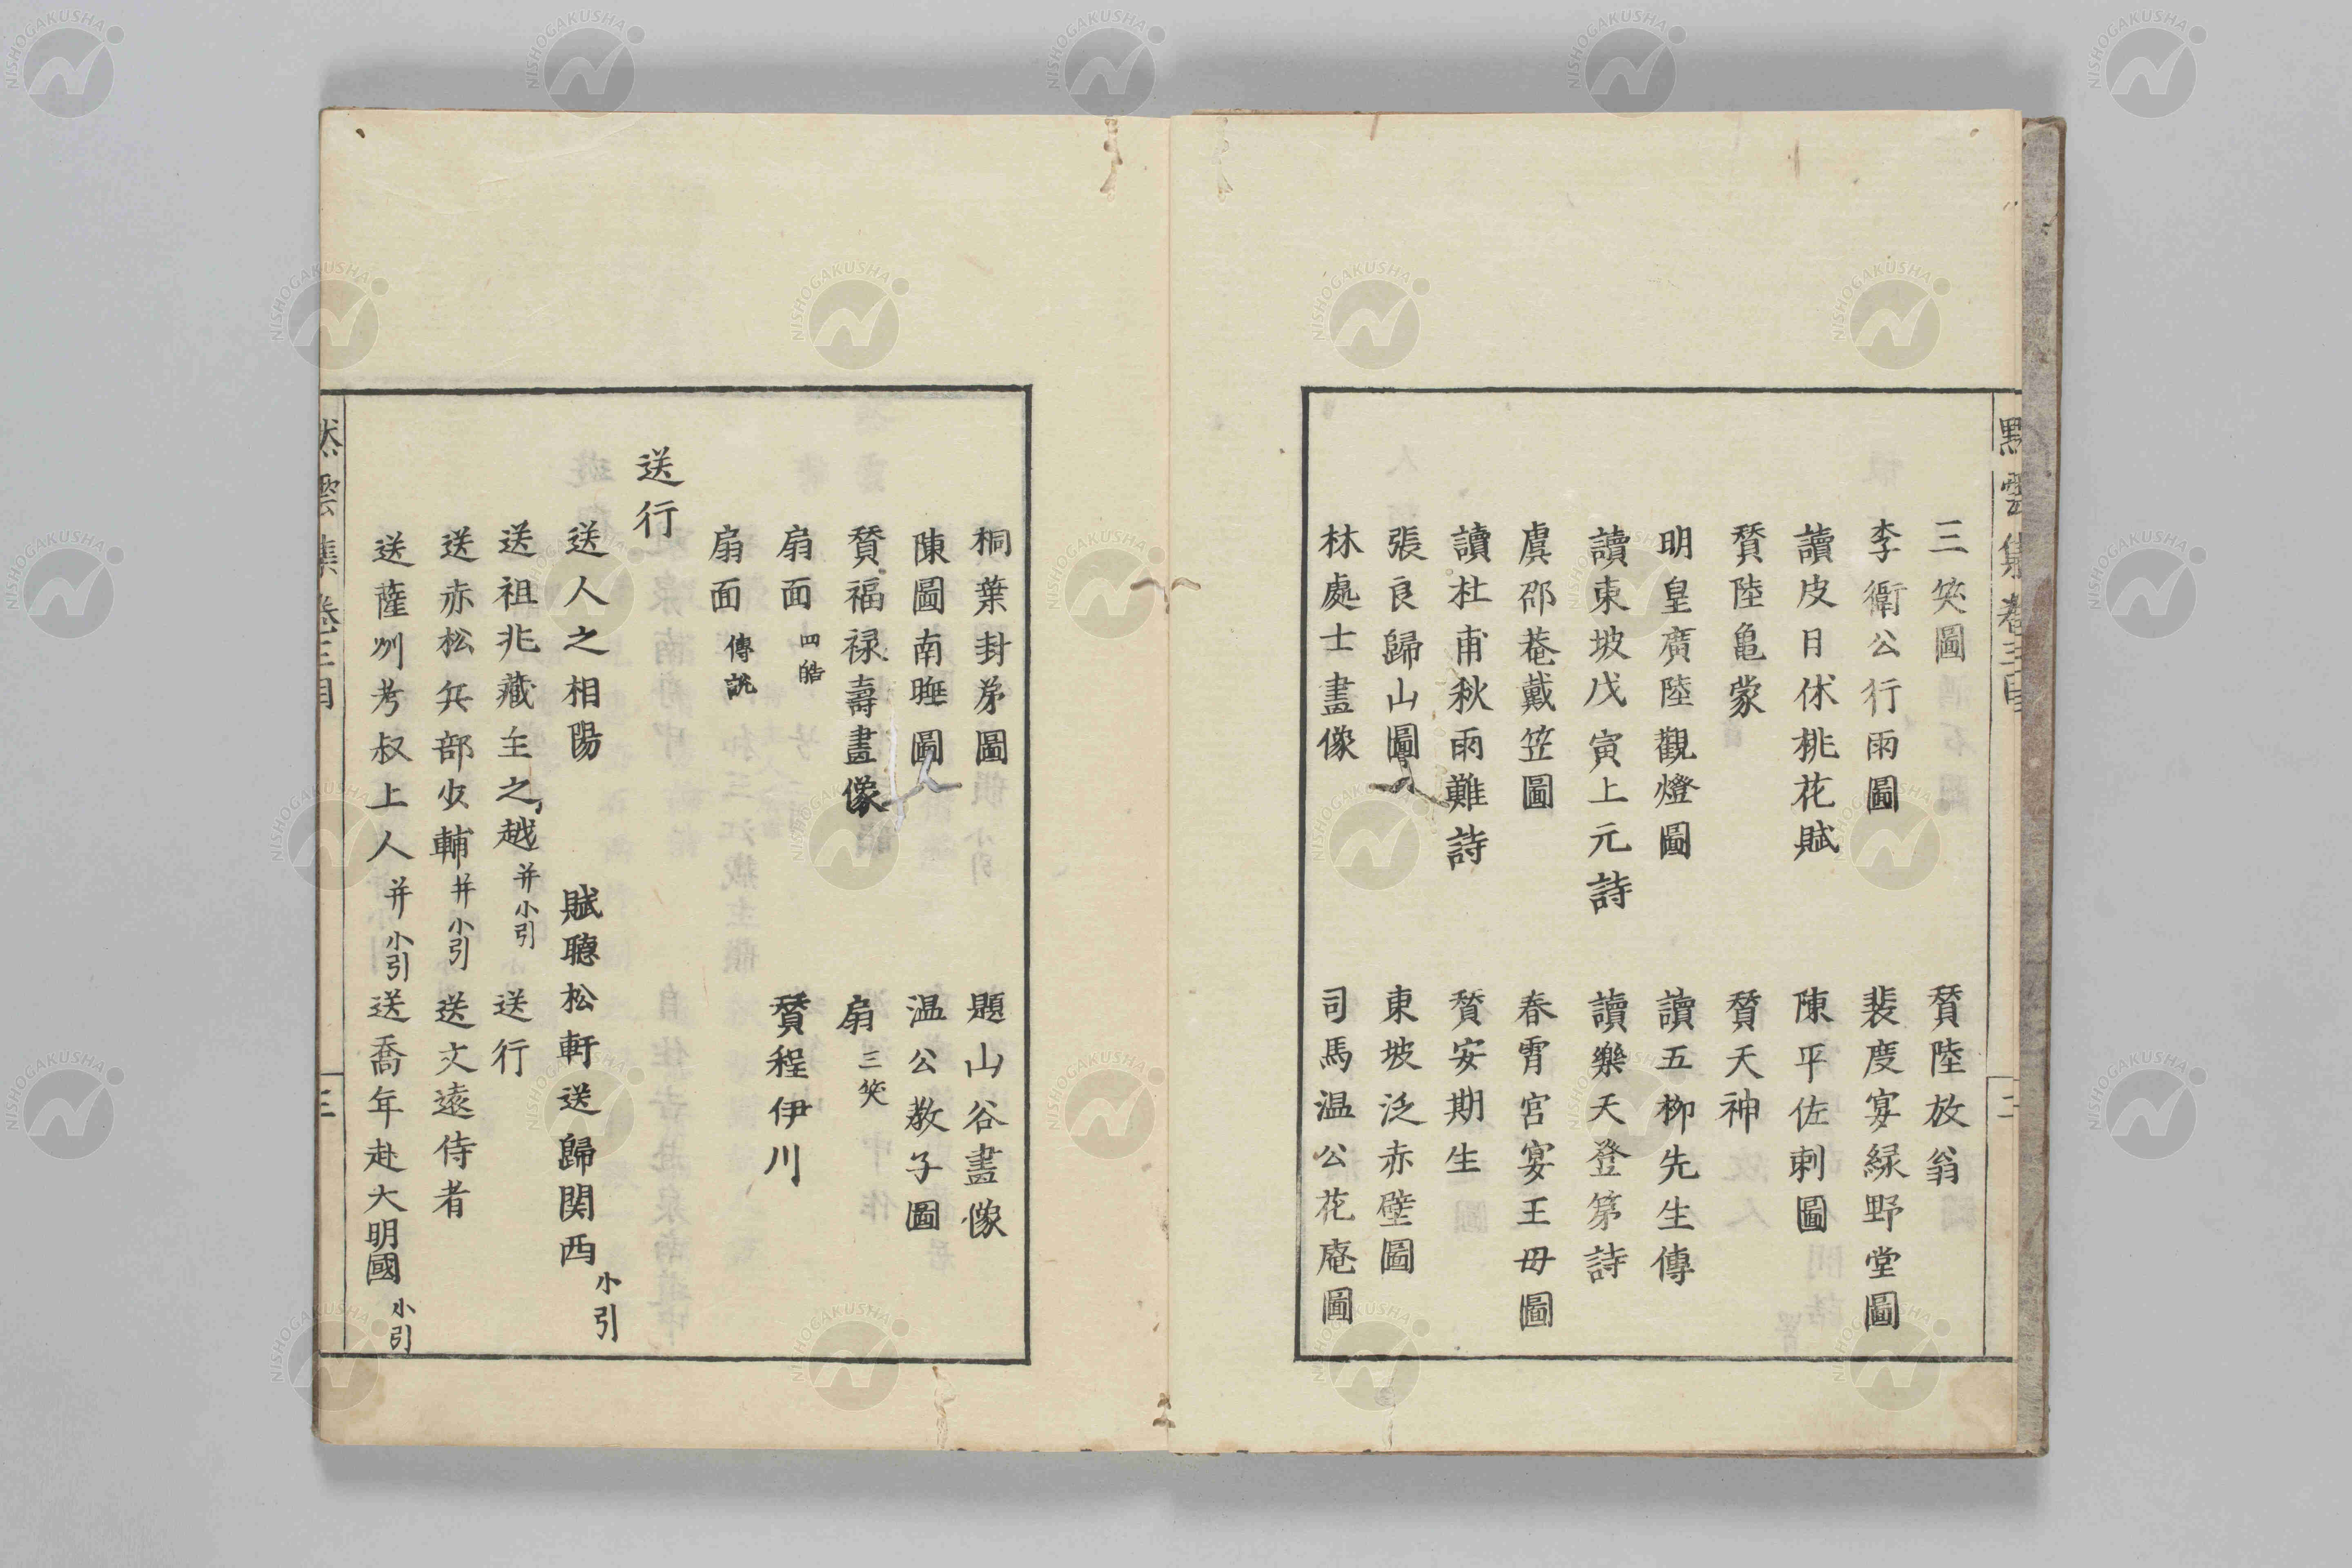 黙雲集卷三目 二
三笑圖 賛陸放翁
李衛公行雨圖 裴度宴緑野堂圖
讀皮日休桃花賦 陳平佐刺圖
賛陸亀蒙 賛天神
明皇廣陸觀燈圖 讀五柳先生傳
讀東坡戊寅上元詩 讀樂天登第詩
虞邵菴戴笠圖 春霄宮宴王母圖
讀杜甫秋雨難詩 賛安期生
張良歸山圖 東坡泛赤壁圖
林處士畫像 司馬温公花庵圖
桐葉封弟圖 題山谷畫像
陳圖南圖 温公教子圖
賛福禄壽畫像 扇 三笑
扇面 四皓 賛程伊川
扇面 傳說
送行
送人之相陽 賦聴松軒送歸関西 小引
送祖兆藏主之越 并小引 送行
送赤松兵部少輔 并小引 送文遠侍者
送薩州考叔上人 并小引 送喬年赴大明國 小引
然雲集卷三目 三
NISHOGAKUSHA